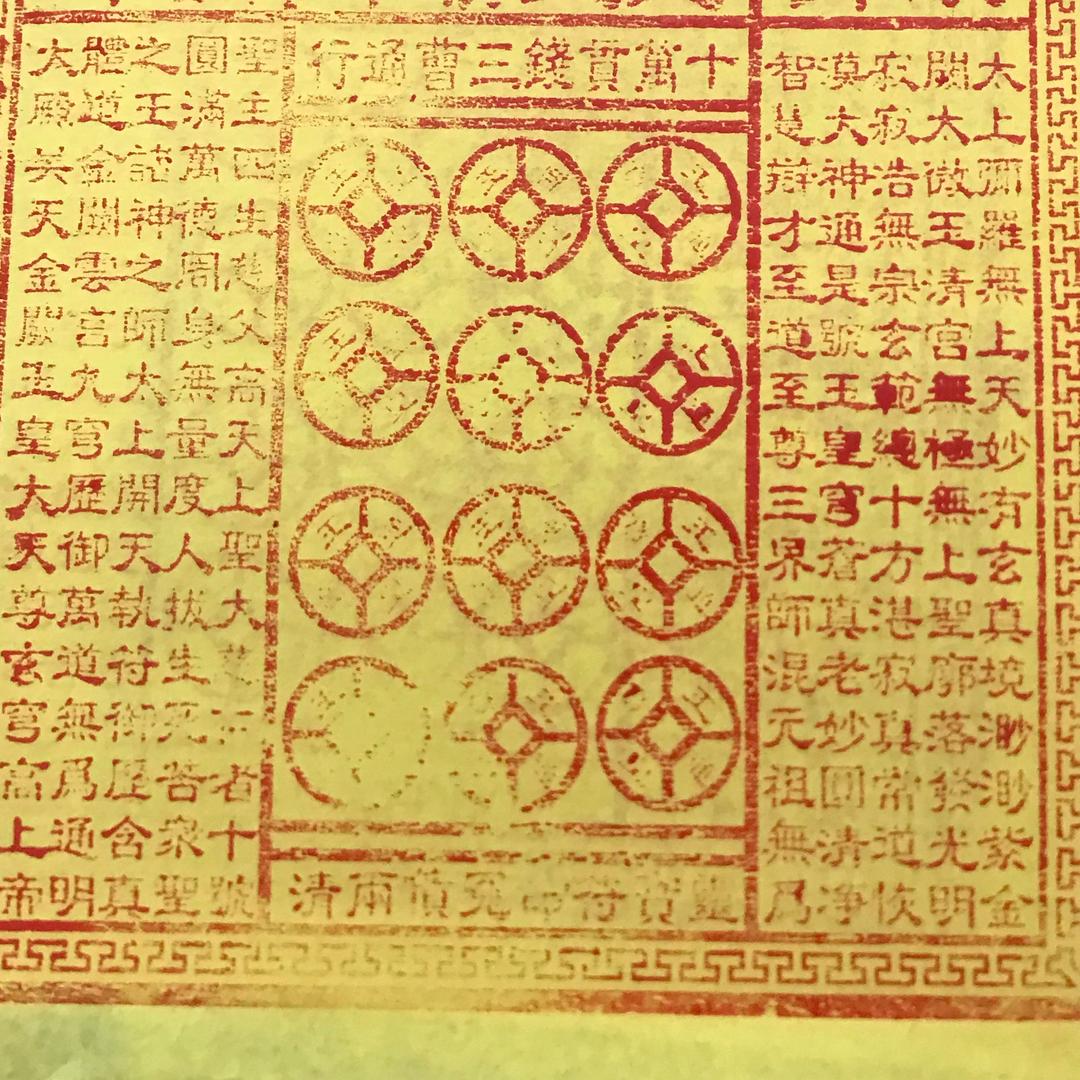 太上彌羅無上天妙有玄真境渺渺紫金
闕太微玉清宮無極無上聖廓落發光明
寂寂浩無宗玄範總十方湛寂真常道恢
漠大神通是號玉皇穹蒼真老妙圓清淨
智慧辯才至道至尊三界師混元祖無爲
十萬貫錢三曹通行
靈寶符命冤債兩清
聖主四生慈父高天上聖大慈仁者十號
圓滿萬德周身無量度人拔生死苦眾聖
之王諸神之師太上開天執符御歷含真
體道金闕雲宮九穹歷御萬道無爲通明
大殿昊天金闕玉皇大天尊玄穹高上帝